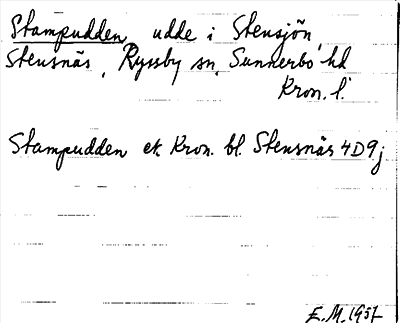 Stampudden, udde i Stensjön,
Stensnäs, Ryssby sn, Sunnerbo hd
Kron. l.
Stampudden ek. Kron. bl. Stensnäs 4D9j
E.M. 1957